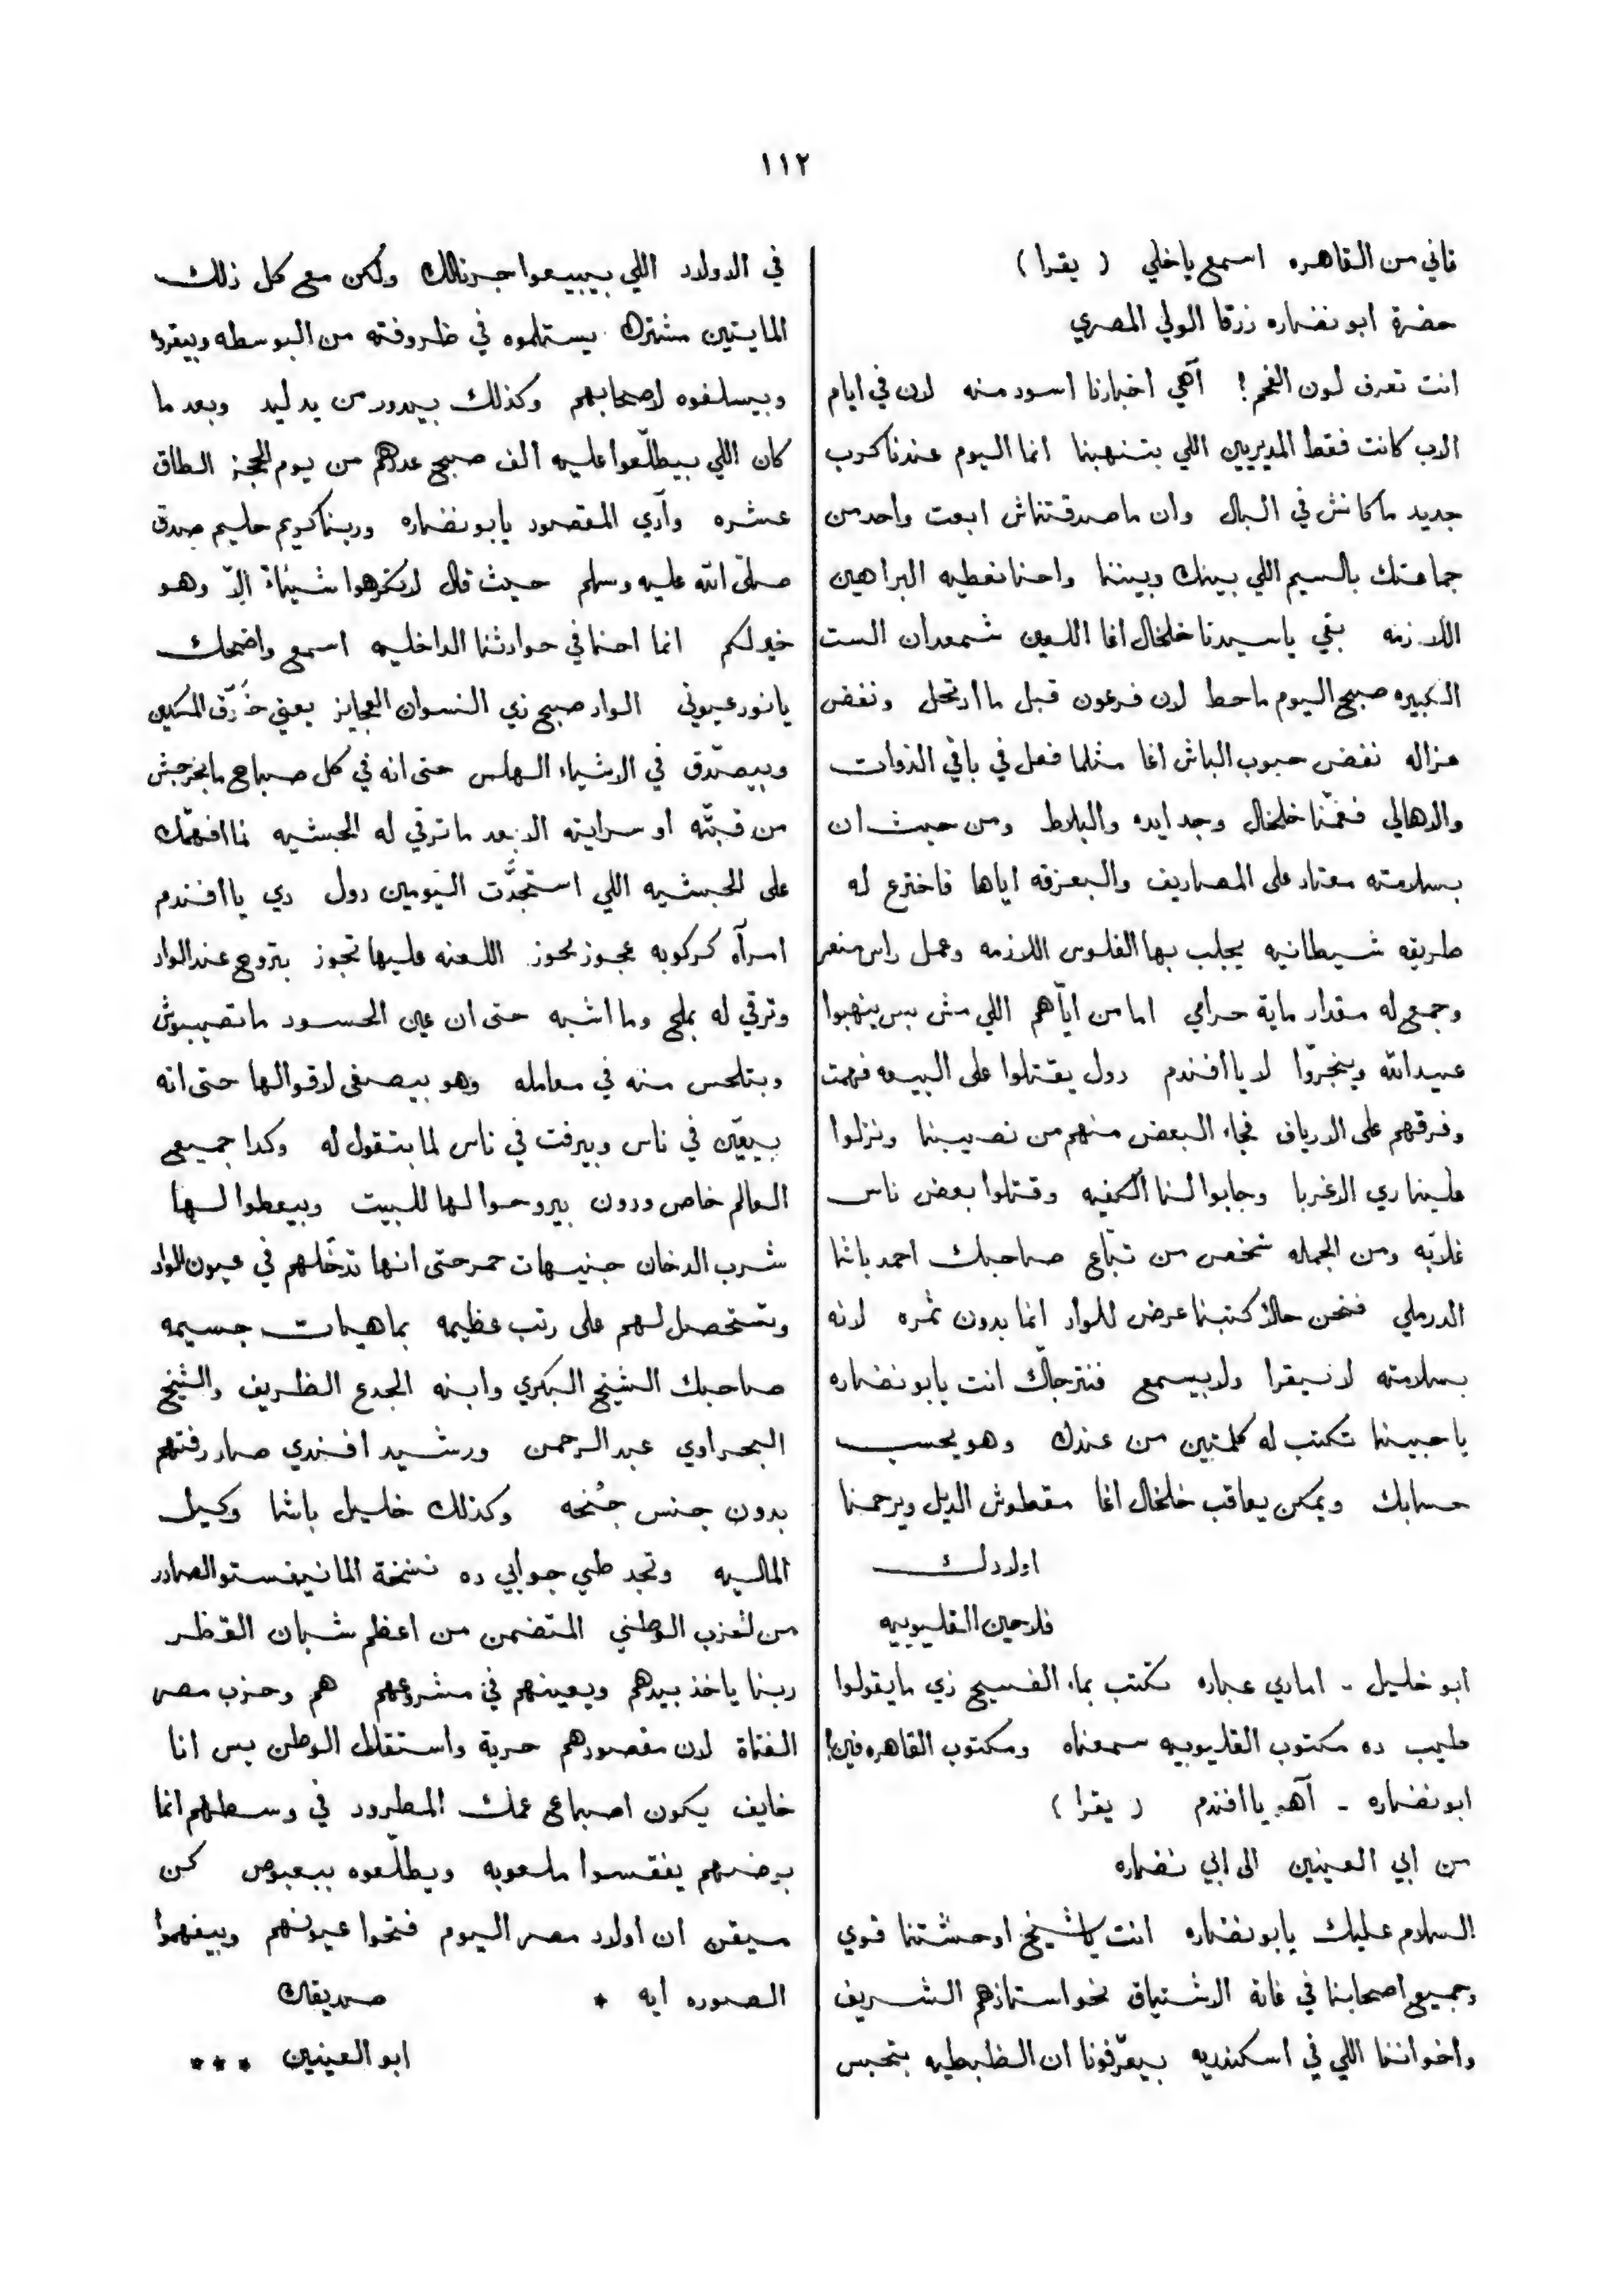 ١١٢
ثاني من القاهره اسمع ياخلي ( يقرا )
حضرة ابو نضاره زرقا الولي المصري
انت تعرف لون الفحم ! آهي اخبارنا اسود منه لان في ايام
الاب كانت فقط المديريين اللي بتنهبنا انما اليوم عندنا كرب
جديد ما كانش في البال وان ما صدقتناش ابعت واحد من
جماعتك بالسيم اللي بينك وبيننا واحنا نعطيه البراهين
اللازمه بقي يا سيدنا خلخال اغا اللعين شمعدان الست
الكبيره صبح اليوم ماحط لان فرعون قبل ما ارتحل ونفض
عزاله نفض جيوب الباش اغا مثلما فعل في باقي الذوات
والاهالي فقمنا خلخال وجد ايده والبلاط ومن حيث ان
بسلامته معتاد على المصاريف والبعزقه اياها فاخترع له
طريقه شيطانيه يجلب بها الفلوس اللازمه وعمل راس منصر
وجمع له مقدار ماية حرامي اما من ايّاهم اللي مش بس ينهبوا
عبيد الله وينجرّوا لا يا افندم دول يقتلوا على البيعه فهمت
وفرقهم على الارياف فجاء البعض منهم من نصيبنا ونزلوا
علينا زي الاغربا وجابوا لنا الكفيه وقتلوا بعض ناس
غلابه ومن الجمله شخص من تبّاع صاحبك احمد باشا
الدرملي فنحن حالاً كتبنا عرض للواد انما بدون ثمره لانه
بسلامته لا بيقرا ولا بيسمع فنترجاك انت يابو نضاره
يا حبيبنا تكتب له كلمتين من عندك وهو يحسب
حسابك ويمكن يعاقب خلخال اغا مقطوش الديل ويرحمنا
اولادك
فلاحين القليوبيه
ابو خليل - اما دي عباره تكتب بماء الفسيخ زي ما يقولوا
طيب ده مكتوب القليوبيه سمعناه ومكتوب القاهره فين !
ابو نضاره - آهه يا افندم ( يقرا )
من ابي العينين الى ابي نضاره
السلام عليك يابو نضاره انت يا شيخ اوحشتنا قوي
وجميع اصحابنا في غاية الاشتياق نحو استاذهم الشريف
واخواننا اللي في اسكندريه بيعرّفونا ان الظبطيه بتحبس
في الاولاد اللي بيبيعوا جرنالك ولكن مع كل ذلك
المايتين مشترك يستلموه في ظروفته من البوسطه وبيقروه
وبيسلفوه لاصحابهم وكذلك بيدور من يد ليد وبعد ما
كان اللي بيطلّعوا عليه الف صبح عددهم من يوم الحجز الطاق
عشره وآدي المقصود يابو نضاره وربنا كريم حليم صدق
صلّى الله عليه وسلم حيث قال لا تكرهوا شيئاً الاّ وهو
خير لكم انما احنا في حوادثنا الداخليه اسمع واضحك
يا نور عيوني الواد صبح زي النسوان العجايز يعني خَرّف المسكين
وبيصدّق في الاشياء الهلس حتى انه في كل صباح ما بيخرجش
من قبته او سرايته الا بعد ما ترقي له الحبشيه اما افهمك
على الحبشيه اللي استجدَّت اليومين دول دي يا افندم
امرأه كركوبه عجوز نحوز اللعنه عليها تجوز بتروح عند الواد
وترقي له بملح وما اشبه حتى ان عين الحسود ما تصيبوش
وبتلحس منه في معامله وهو بيصغى لاقوالها حتى انه
بيعيّن في ناس وبيرفت في ناس لما بتقول له وكدا جميع
العالم خاص ودون بيروحوا لها للبيت وبيعطوا لها
شرب الدخان جنيهات حمر حتى انها تدخّلهم في عيون الواد
وتستحصل لهم على رتب عظيمه بماهيات جسيمه
صاحبك الشيخ البكري وابنه الجدع الظريف والشيخ
البحراوي عبد الرحمن ورشيد افندي صار رفتهم
بدون جنس جُنحه وكذلك خليل باشا وكيل
الماليه وتجد طي جوابي ده نسخة المانيفستو الصادر
من الحزب الوطني المتضمن من اعظم شبان القطر
ربنا ياخذ بيدهم ويعينهم في مشروعهم هم وحزب مصر
الفتاة لان مقصودهم حرية واستقلال الوطن بس انا
خايف يكون اصباع عمك المطرود في وسطهم انما
برضهم يفقسوا ملعوبه ويطلّعوه ببعبوص كن
متيقن ان اولاد مصر اليوم فتحوا عيونهم وبيفهموا
الصوره ايه *
صديقك
ابو العينين ***